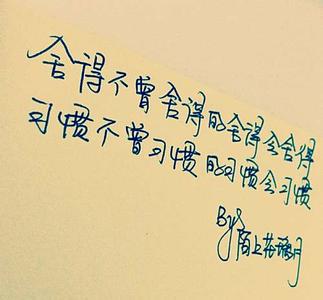 舍得不曾舍得的舍得会舍得
习惯不曾习惯的习惯会习惯
By 陌上